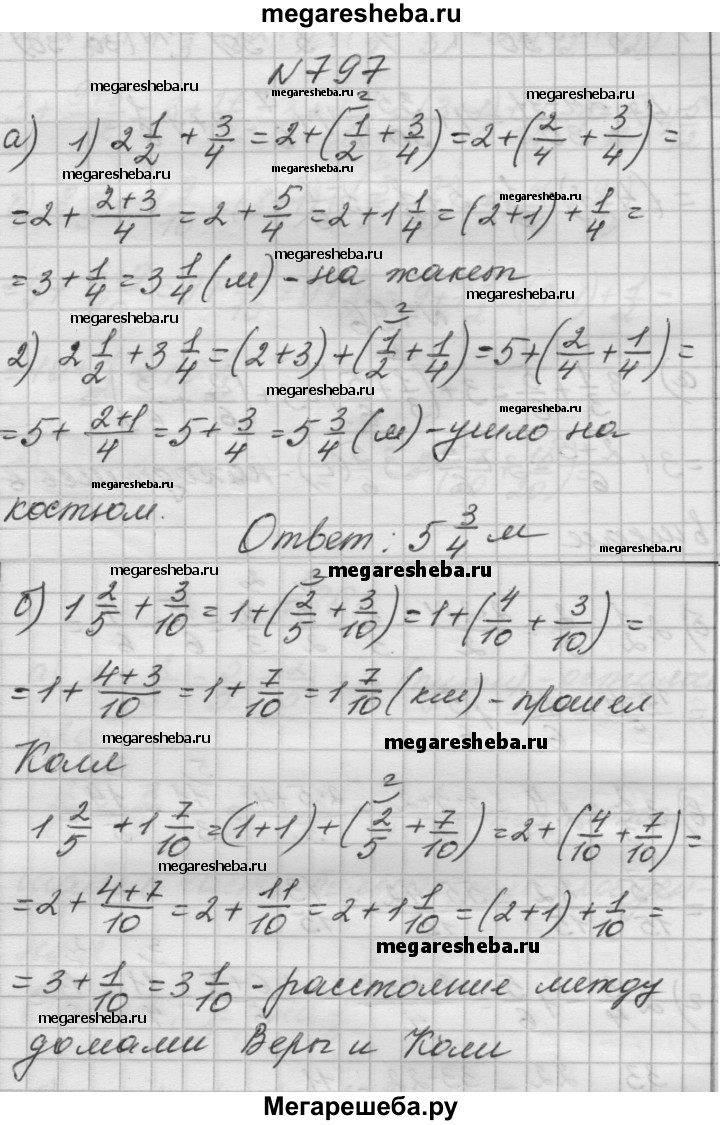 megaresheba.ru
N797
megaresheba.ru megaresheba.ru megaresheba.ru
а) 1) 2 1/2 + 3/4 = 2 + (1/2 + 3/4) = 2 + (2/4 + 3/4) =
megaresheba.ru megaresheba.ru
= 2 + 2+3/4 = 2 + 5/4 = 2 + 1 1/4 = (2+1) + 1/4 =
megaresheba.ru
megaresheba.ru
= 3 + 1/4 = 3 1/4 (м) - на жакет
megaresheba.ru
megaresheba.ru megaresheba.ru
2) 2 1/2 + 3 1/4 = (2+3) + (1/2 + 1/4) = 5 + (2/4 + 1/4) =
megaresheba.ru
megaresheba.ru
= 5 + 2+1/4 = 5 + 3/4 = 5 3/4 (м) - ушло на
megaresheba.ru
megaresheba.ru
костюм.
Ответ: 5 3/4 м
megaresheba.ru
megaresheba.ru
megaresheba.ru
б) 1 2/5 + 3/10 = 1 + (2/5 + 3/10) = 1 + (4/10 + 3/10) =
megaresheba.ru
= 1 + 4+3/10 = 1 + 7/10 = 1 7/10 (км) - прошел
megaresheba.ru
megaresheba.ru
Коля
megaresheba.ru
1 2/5 + 1 7/10 = (1+1) + (2/5 + 7/10) = 2 + (4/10 + 7/10) =
megaresheba.ru
= 2 + 4+7/10 = 2 + 11/10 = 2 + 1 1/10 = (2+1) + 1/10 =
megaresheba.ru
megaresheba.ru
= 3 + 1/10 = 3 1/10 - расстояние между
megaresheba.ru
домами Веры и Коли
Мегарешеба.ру